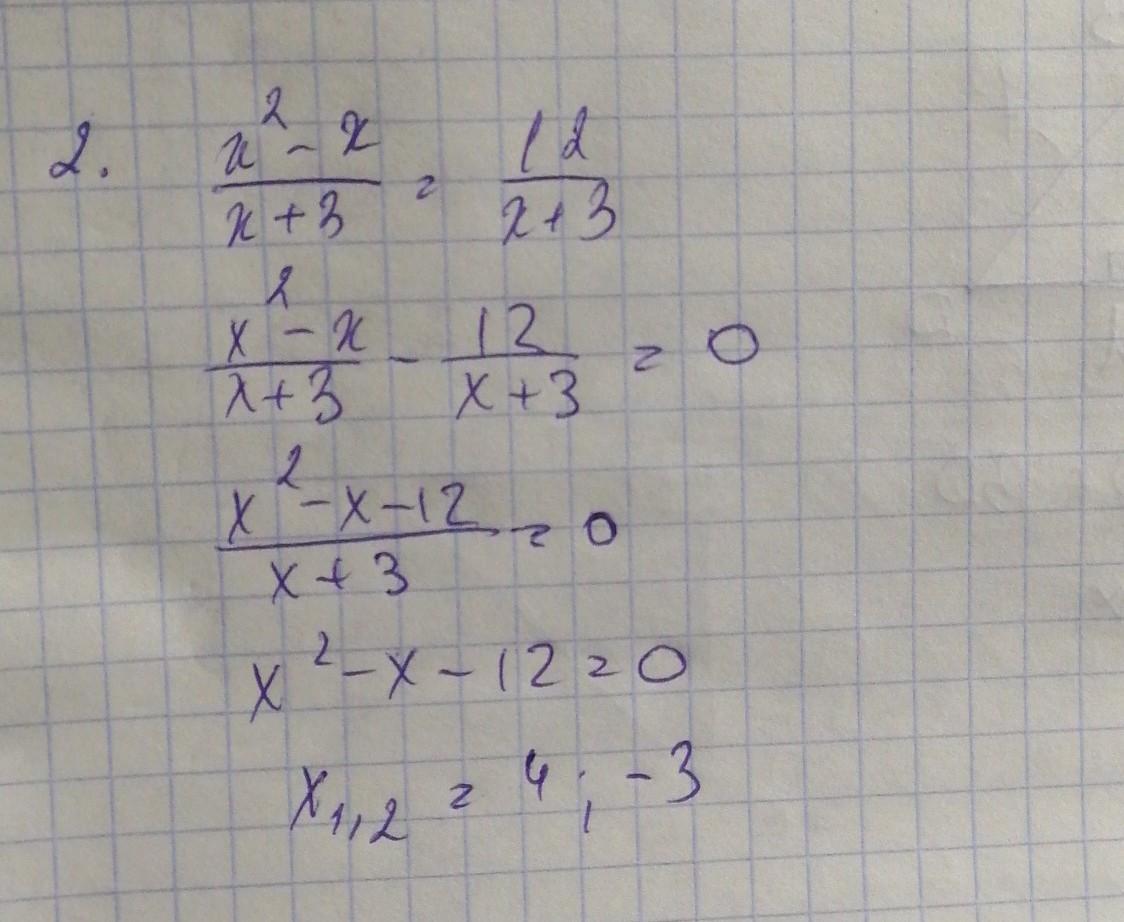 2. (x² - x)/(x + 3) = 12/(x + 3)
(x² - x)/(x + 3) - 12/(x + 3) = 0
(x² - x - 12)/(x + 3) = 0
x² - x - 12 = 0
x₁,₂ = 4 ; -3